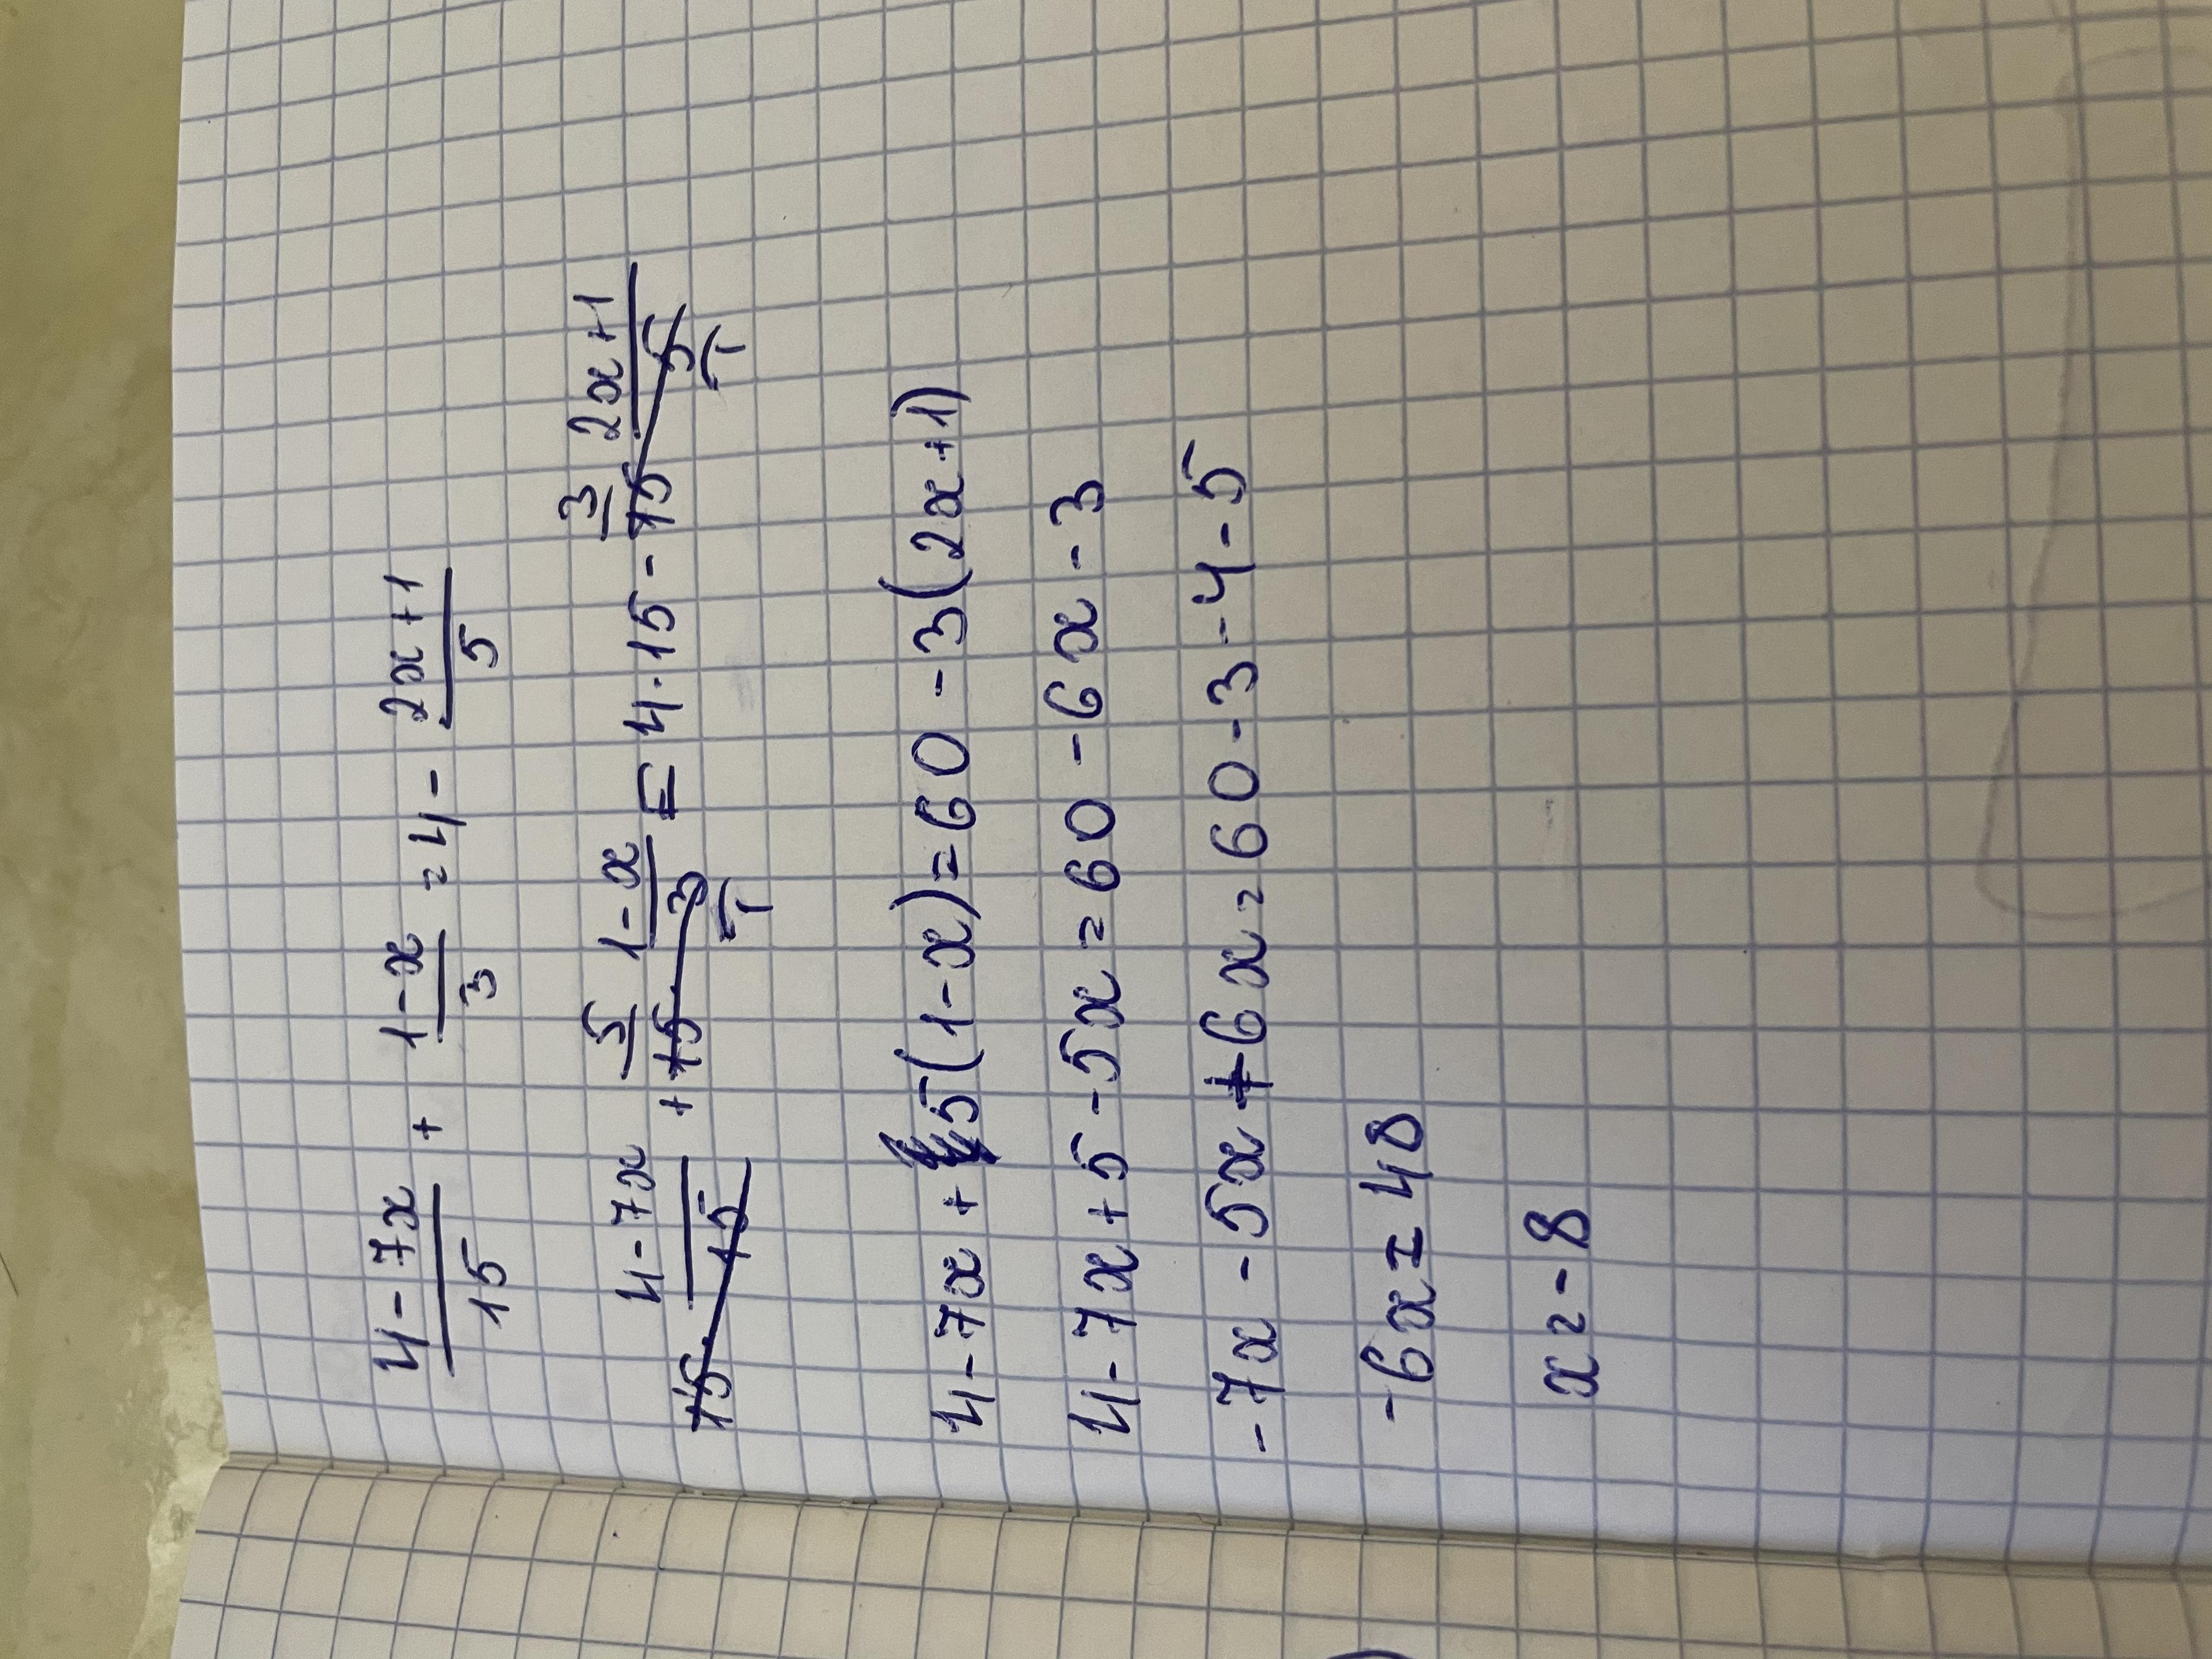 (4-7x)/15 + (1-x)/3 = 4 - (2x+1)/5
15 · (4-7x)/15 + 15 5 · (1-x)/3 1 = 4 · 15 - 15 3 · (2x+1)/5 1
4-7x + 5(1-x) = 60 - 3(2x+1)
4-7x+5-5x = 60-6x-3
-7x-5x+6x = 60-3-4-5
-6x = 48
x = -8